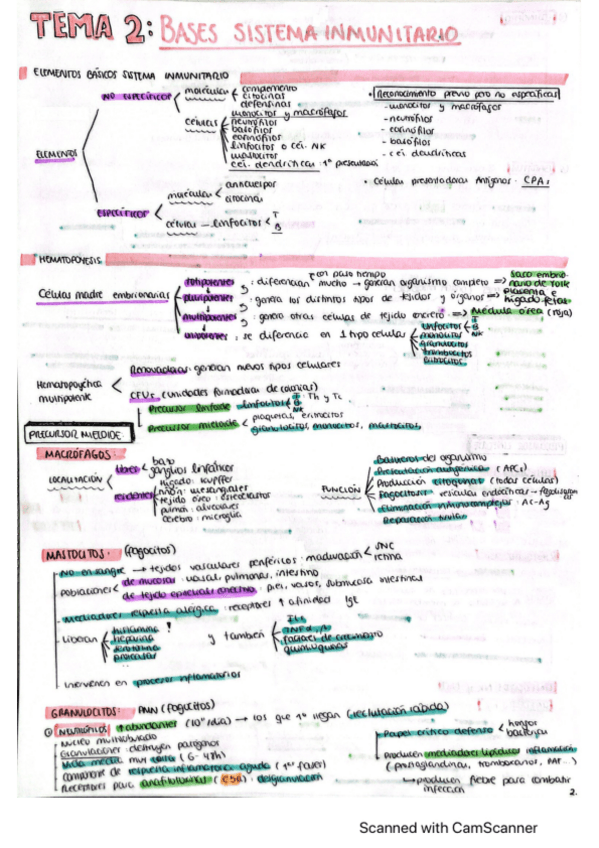 TEMA 2: BASES SISTEMA INMUNITARIO
ELEMENTOS BÁSICOS SISTEMA INMUNITARIO
ELEMENTOS
NO ESPECÍFICOS
moléculas
complemento
citocinas
defensinas
células
monocitos y macrófagos
neutrófilos
basófilos
eosinófilos
linfocitos o cél. NK
mastocitos
cel. dendríticas: 1º
ESPECÍFICOS
moléculas
anticuerpos
citocinas
células - linfocitos
T
B
• Reconocimiento previo pero no específicas
- monocitos y macrófagos
- neutrófilos
- eosinófilos
- basófilos
- cel dendríticas
• Células presentadoras Antígenos: CPAs
HEMATOPOYESIS
Células madre embrionarias
totipotentes: diferencian mucho → generan organismo completo ⇒ saco
con paso tiempo
placenta e
hígado fetal
pluripotentes: genera los distintos tipos de tejidos y órganos ⇒
multipotentes: genera otras células de tejido concreto ⇒ Médula ósea (roja)
unipotentes: se diferencia en 1 tipo células
linfocitos
T
B
NK
monocitos
granulocitos
trombocitos
eritrocitos
Hematopoyética
multipotente
Renovadoras: generan nuevos tipos celulares
CFUs (unidades formadoras de colonias)
Precursor linfoide linfocitos
T: Th y Tc
B
NK
Precursor mieloide
plaquetas, eritrocitos
granulocitos, monocitos, mastocitos,
PRECURSOR MIELOIDE
MACRÓFAGOS:
LOCALIZACIÓN
libres
bazo
ganglios linfáticos
residentes
hígado: Kupffer
riñón: mesangiales
tejido óseo: osteoclastos
pulmón: alveolares
cerebro: microglía
FUNCIÓN
Basureros del organismo
Presentación antigénica (APCs)
Producción citoquinas (todas células)
Fagocitosis: vesículas endocíticas →
Eliminación inmunocomplejos: AC-Ag
Reparación tisular
MASTOCITOS: (fagocitos)
- NO en sangre → tejidos vasculares periféricos: maduración
SNC
retina
- Poblaciones
de mucosas: vasal, pulmonar, intestino
de tejido conectivo: piel, vasos, submucosa intestinal
- Mediadores respuesta alérgica: receptores ↑ afinidad IgE
- Liberan
histamina !
heparina
serotonina
proteasas
y también
factores de crecimiento
quimioquinas
- Intervienen en procesos inflamatorios
GRANULOCITOS: PMN (fagocitos)
NEUTRÓFILOS ↑ abundantes → los que 1º llegan (reclutación rápida)
- Núcleo multilobulado
- Granulaciones: destruyen patógenos
- Vida media muy corta (6-
- Componente de respuesta inflamatoria aguda (1ª fase)
- Receptores para anafilotoxinas (C5a): degranulación
- Papel crítico defensa
hongos
bacterias
- Producen mediadores lipídicos inflamación
(prostaglandinas, tromboxanos, PAF...)
↳ producen fiebre para combatir
infección
2.
Scanned with CamScanner